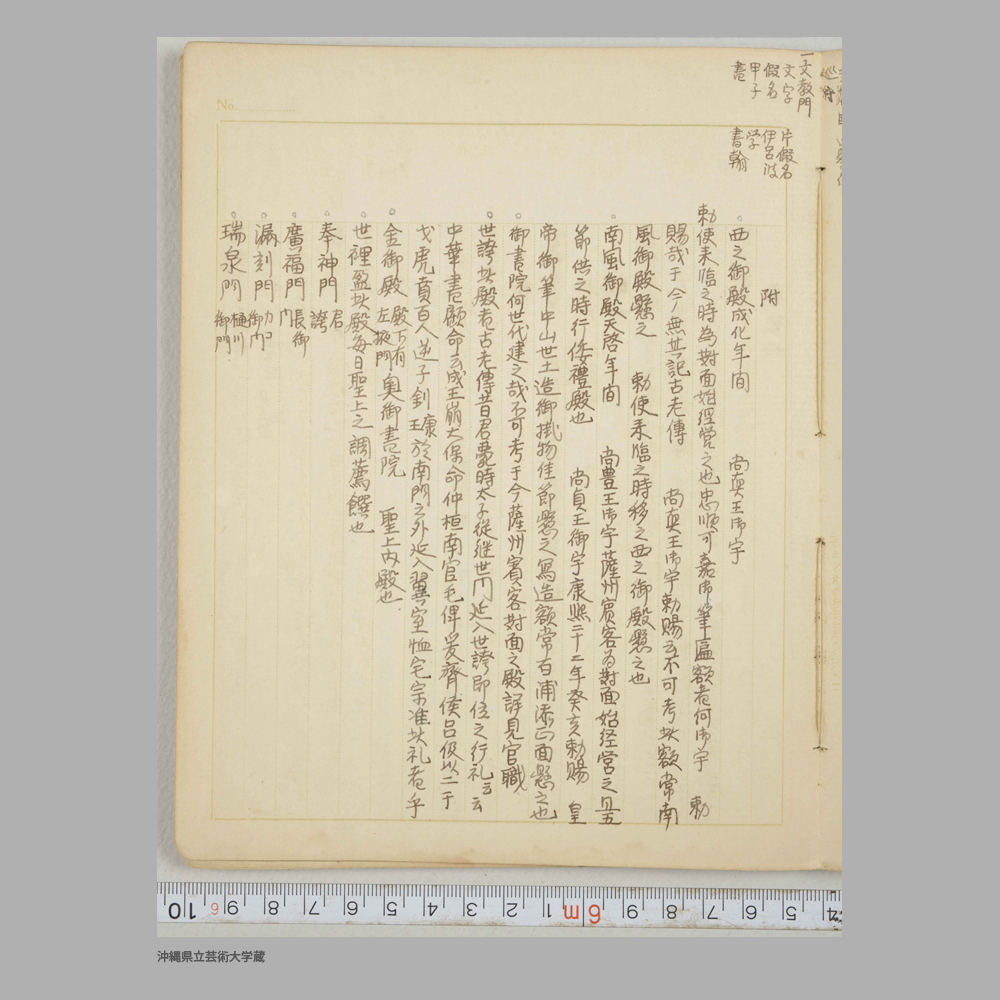 一文教門
文字 片假名
假名 伊呂波
甲子 学
書 書翰
附
西之御殿成化年間 尚真王御宇
勅使来臨之時為對面始經営之也忠順可嘉御筆匾額者何御宇 勅
賜哉于今無其記古老傳 尚真王御宇勅賜云不可考此額常南
風御殿懸之 勅使来臨之時移之西之御殿懸之也
南風御殿天啓年間 尚豊王御宇薩州賓客為對面始経営之且五
節供之時行倭禮殿也 尚貞王御宇康熙二十二年癸亥勅賜 皇
帝御筆中山世土造御掛物佳節懸之寫造額常百浦添正面懸之也
御書院何世代建之哉不可考于今薩州賓客對面之殿詳見官職
世誇此殿者古老傳昔君薨時太子從継世門延入世誇即位之行礼云云
中華書顧命云成王崩太保命仲桓南宮毛俾爰齊侯呂伋以二于
戈虎賁百人逆子釗康王於南門之外延入翼室恤宅宗准此礼者乎
金御殿 殿下有左掖門 奥御書院 聖上内殿也
世裡盈此殿毎日聖上之調薦饌也
奉神門 君誇
廣福門 長御門
漏刻門 カゴ御門
瑞泉門 樋川御門
No.
10 6 9 8 7 6 5 4 3 2 1 6m 9 8 7 6 5 4
沖縄県立芸術大学蔵